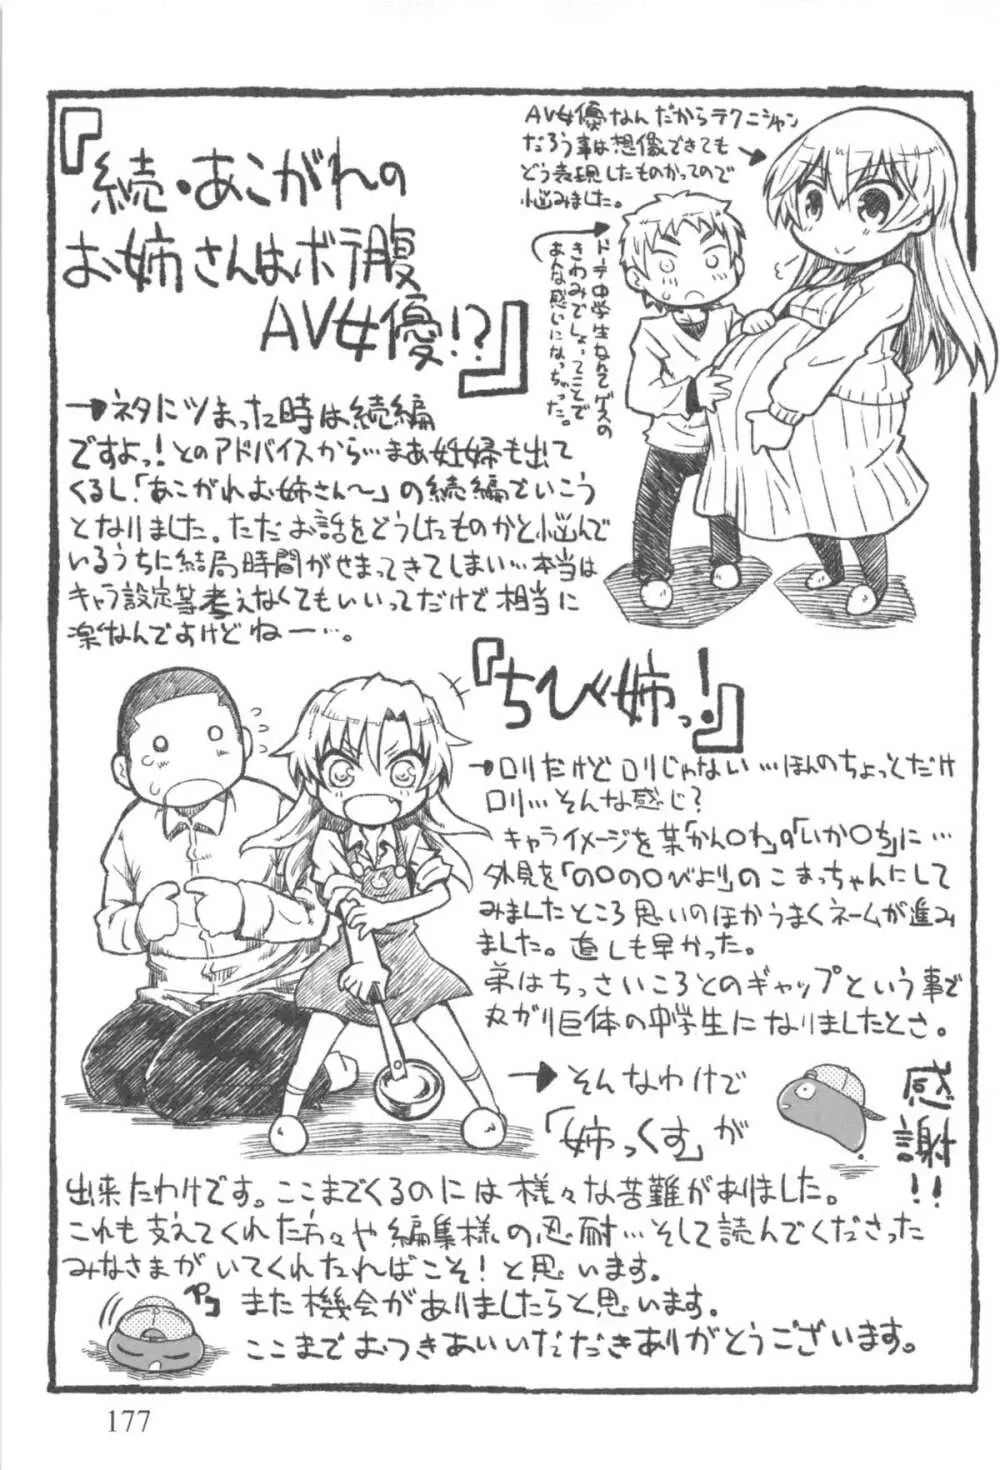 『続・あこがれの
お姉さんはボテ腹
AV女優!?』
AV女優なんだからテクニシャン
だろう事は想像できても
どう表現したものかってので
悩みました。
ドーテー中学生なんてゲスの
きわみでしょってことで
あんな感じになっちゃった。
→ネタにツまった時は続編
ですよっ!とのアドバイスから…まあ妊婦も出て
くるし「あこがれお姉さん〜」の続編でいこう
となりました。ただお話をどうしたものかと悩んで
いるうちに結局時間がせまってきてしまい…本当は
キャラ設定等考えなくてもいいってだけで相当に
楽なんですけどねー…。
『ちび姉っ!』
→ロリだけどロリじゃない…ほんのちょっとだけ
ロリ…そんな感じ?
キャライメージを某「かん〇れ」の「いか〇ち」に…
外見を「の〇の〇びより」のこまっちゃんにして
みましたところ思いのほかうまくネームが進み
ました。直しも早かった。
弟はちっさいころとのギャップという事で
丸がり巨体の中学生になりましたとさ。
→そんなわけで
「姉っくす」が
出来たわけです。ここまでくるのには様々な苦難がありました。
これも支えてくれた方々や編集様の忍耐…そして読んでくださった
みなさまがいてくれたればこそ!と思います。
また機会がありましたらと思います。
ここまでおつきあいいただきありがとうございます。
感謝!!
ペコ
177